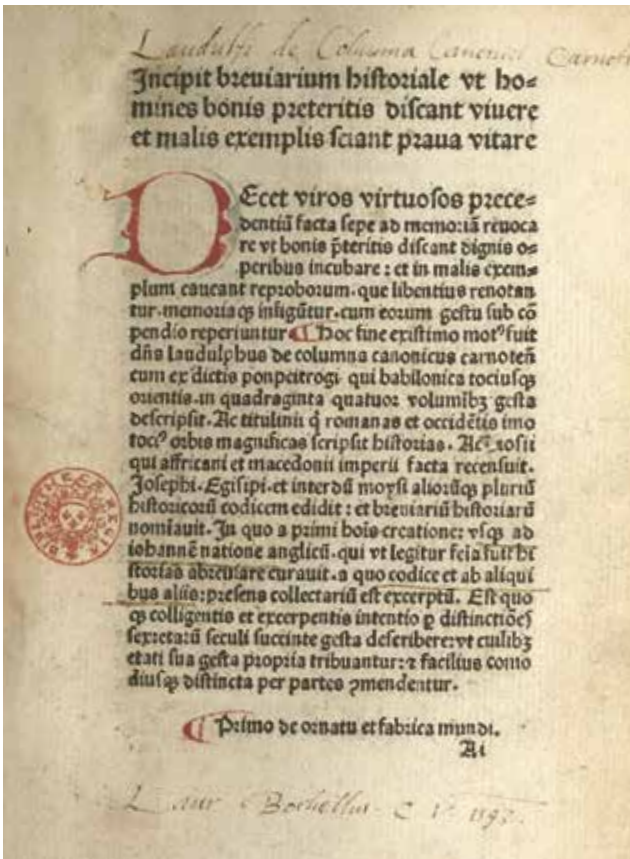 Laudulfi de Columna Canonici Carnot
Incipit breuiarium historiale vt ho=
mines bonis preteritis discant viuere
et malis exemplis sciant praua vitare
DEcet viros virtuosos prece=
dentiū facta sepe ad memoriā reuoca
re vt bonis p̄teritis discant dignis o=
peribus incubare: et in malis exem=
plum caueant reproborum. que libentius renotan
tur. memoriaqꝫ infigūtur. cum eorum gestu sub cō
pendio reperiuntur ¶ Hoc fine existimo motꝰ fuit
dn̄s laudulphus de columna canonicus carnoten̄
cum ex dictis ponpeitrogi qui babilonica tociusqꝫ
orientis. in quadraginta quatuor volumībꝫ gesta
descripsit. Ac titulinii q̄ romanas et occidētis imo
tociꝰ orbis magnificas scripsit historias. Ac orosii
qui affricani et macedonii imperii facta recensuit.
Josephi. Egisipi. et interdū moysi aliorūqꝫ pluriū
historicorū codicem edidit: et breuiariū historiarū
nomīauit. In quo a primi hoīs creatione: vsqꝫ ad
iohannē natione anglicū. qui vt legitur feīa fuit hi
storias abreuiare curauit. a quo codice et ab aliqui
bus aliis: presens collectariū est excerptū. Est quo
qꝫ colligentis et excerpentis intentio ꝑ distinctiōes
sex etatū seculi succinte gesta describere: vt cuilibꝫ
etati sua gesta propria tribuantur: ⁊ facilius como
diusqꝫ distincta per partes ꝯmendentur.
¶ Primo de ornatu et fabrica mundi.
Ai
Laur Bochellus